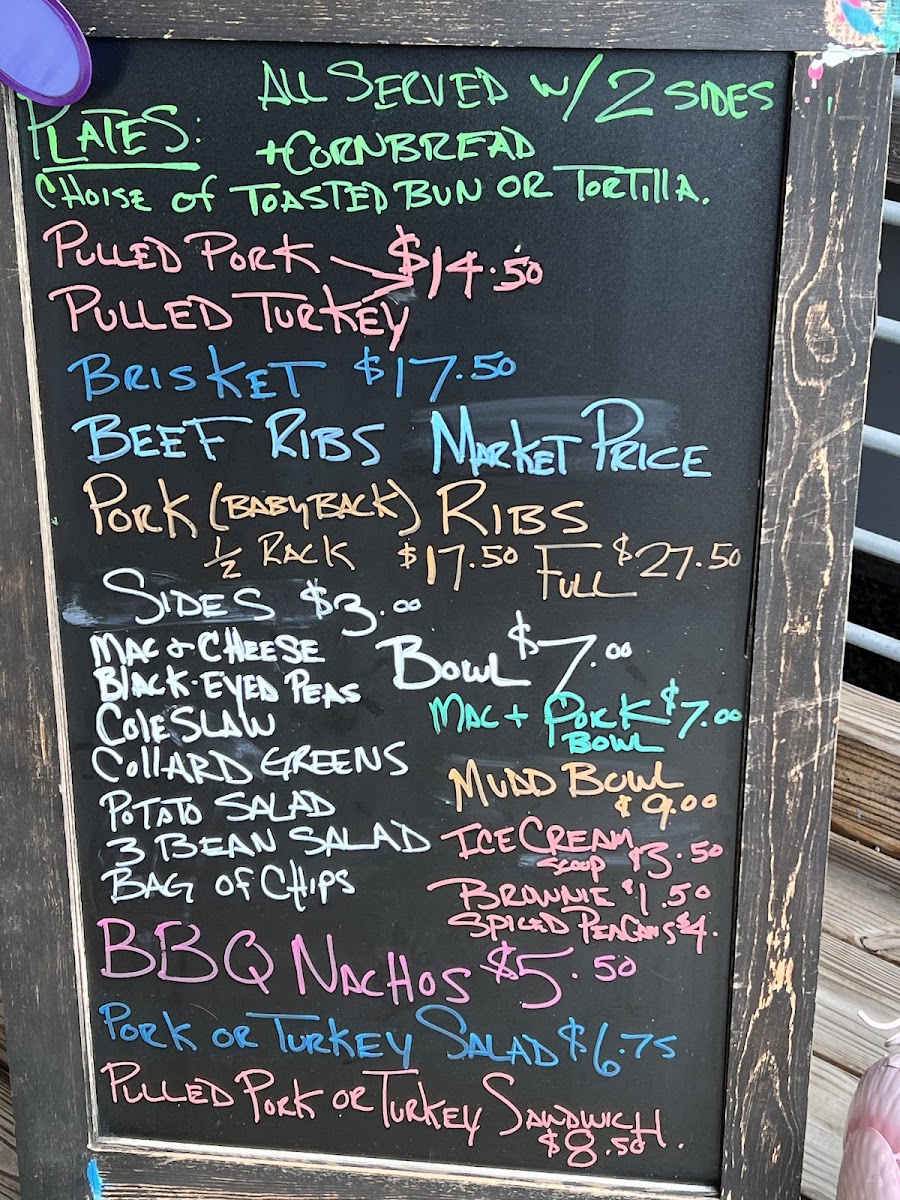 ALL SERVED W/ 2 SIDES
PLATES: + CORNBREAD
CHOISE of TOASTED BUN OR TORTILLA.
PULLED PORK $14.50
PULLED TURKEY
BRISKET $17.50
BEEF RIBS MARKET PRICE
PORK (BABYBACK) RIBS
1/2 RACK $17.50 FULL $27.50
SIDES $3.00
MAC + CHEESE
BLACK-EYED PEAS
COLESLAW
COLLARD GREENS
POTATO SALAD
3 BEAN SALAD
BAG OF CHIPS
BOWL $7.00
MAC + PORK $7.00
BOWL
MUDD BOWL
$9.00
ICE CREAM
SCOOP $3.50
BROWNIE $1.50
SPICED PEACANS $4.
BBQ NACHOS $5.50
PORK OR TURKEY SALAD $6.75
PULLED PORK OR TURKEY SANDWICH.
$8.50